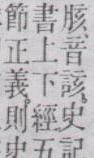 胲、音該、史記
書上下經五
節正義、則史